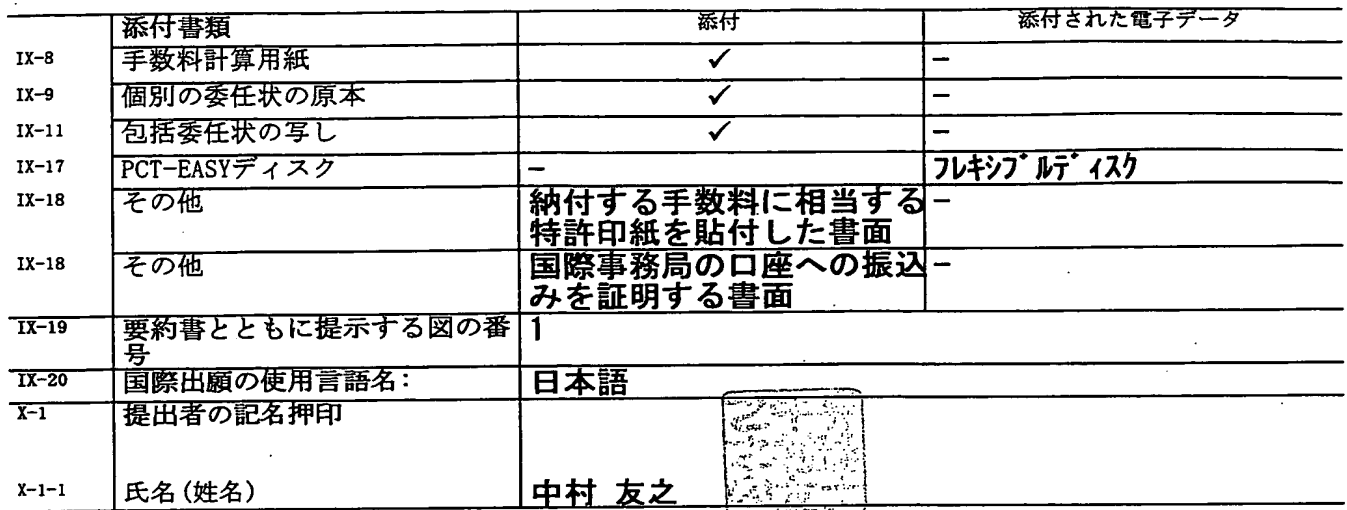 添付書類 添付 添付された電子データ
IX-8 手数料計算用紙 ✓ −
IX-9 個別の委任状の原本 ✓ −
IX-11 包括委任状の写し ✓ −
IX-17 PCT-EASYディスク − フレキシブルディスク
IX-18 その他 納付する手数料に相当する −
特許印紙を貼付した書面
IX-18 その他 国際事務局の口座への振込 −
みを証明する書面
IX-19 要約書とともに提示する図の番 1
号
IX-20 国際出願の使用言語名: 日本語
X-1 提出者の記名押印
X-1-1 氏名(姓名) 中村 友之